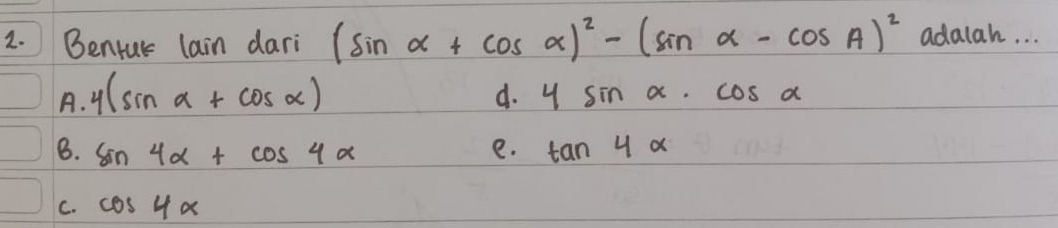 2. Bentuk lain dari (sin α + cos α)² - (sin α - cos A)² adalah...
A. 4(sin α + cos α) d. 4 sin α . cos α
B. sin 4α + cos 4 α e. tan 4 α
c. cos 4 α